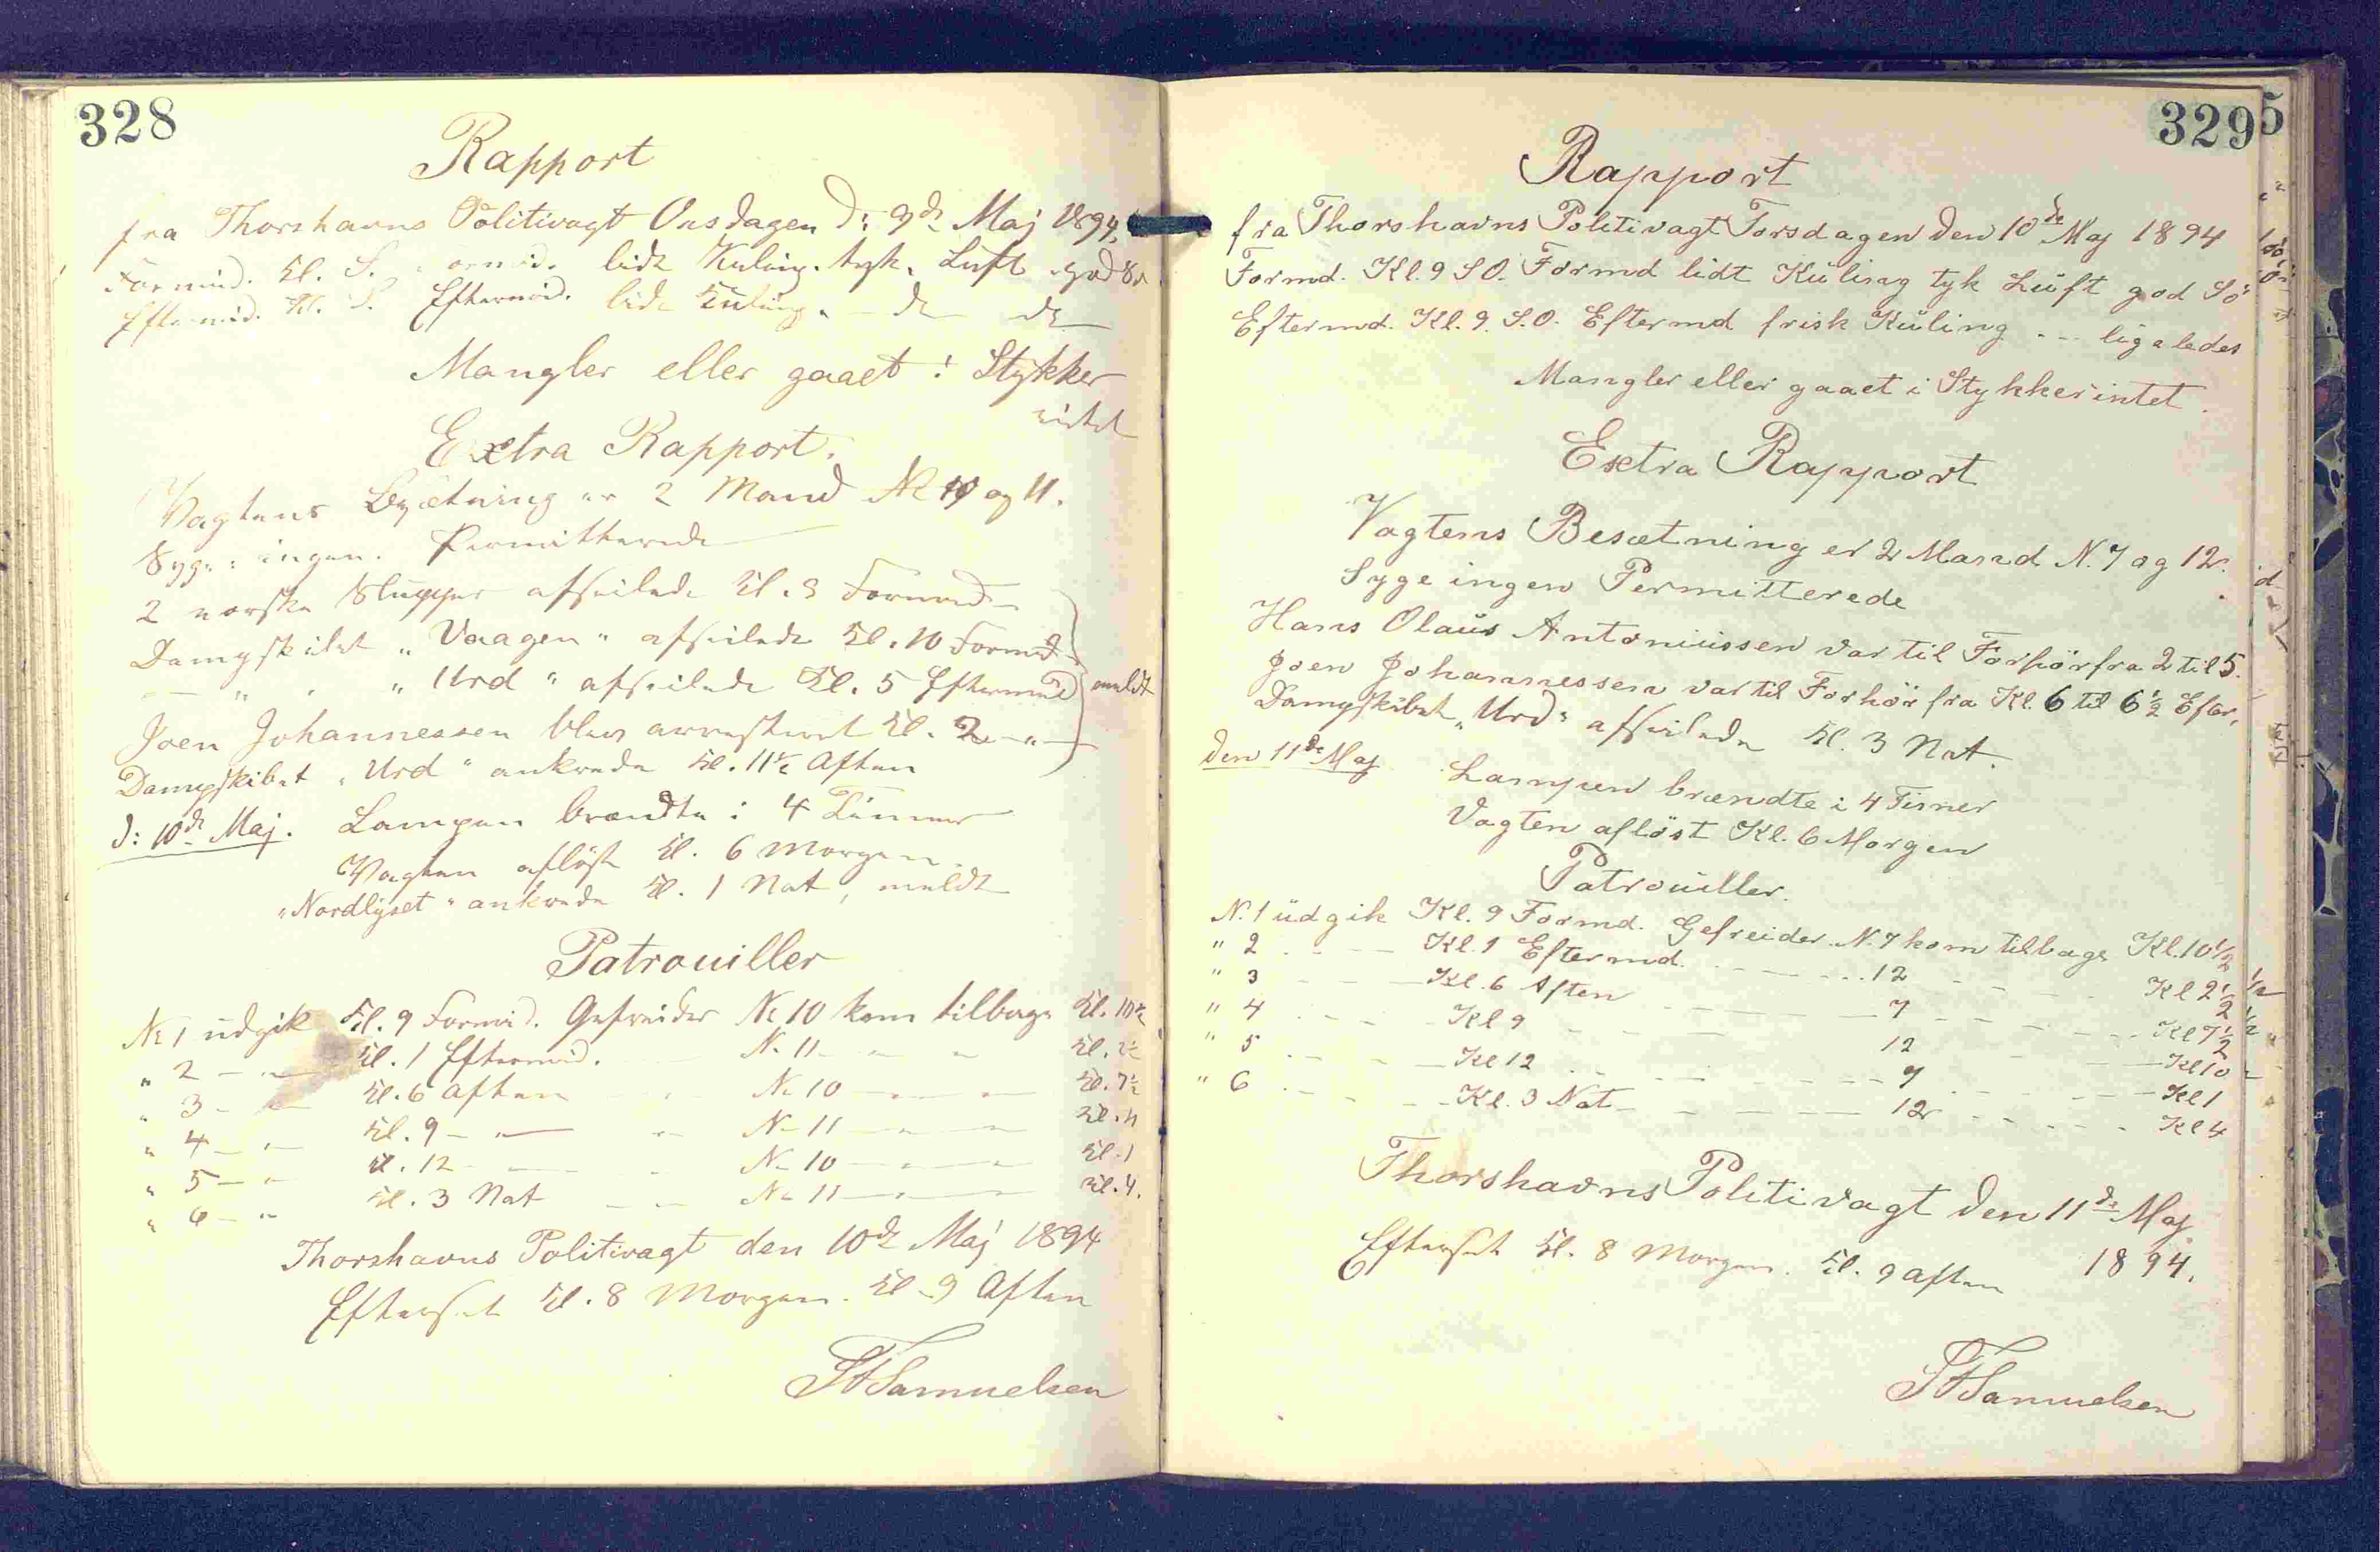 328
Rapport
fra Thorshavns Politivagt Onsdagen d: 9de Maj 1894.
Formid. Kl. S. Formid. lidt Kuling. tyk. Luft god Sø
Eftermid. Kl. S. Eftermid. lidt Kuling. — do do
Mangler eller gaaet i Stykker
intet
Extra Rapport.
Vagtens Besætning er 2 Mand No 10 og 11.
Syge: ingen. Permitterede
2 norske Slupper afseilede Kl. 8 Formid
Dampskibet „Vaagen" afseilede Kl. 10 Formid
— " " „Urd" afseilede Kl. 5 Eftermid meldt
Joen Johannessen blev arresteret Kl. 2 — " —
Dampskibet „Urd" ankrede Kl. 11½ Aften
d: 10de Maj. Lampen brændte i 4 Timer
Vagten afløst Kl. 6 Morgen.
„Nordlyset" ankrede Kl. 1 Nat, meldt
Patrouiller
No 1 udgik Kl. 9 Formid. Gefreider No 10 kom tilbage Kl. 10½
" 2 — " — Kl. 1 Eftermid. — No 11 — " — Kl. 2½
" 3 — " — Kl. 6 Aften — No 10 — " — Kl. 7½
" 4 — " — Kl. 9 — " — No 11 — " — Kl. 11
" 5 — " Kl. 12 — — No 10 — " — Kl. 1
" 6 — " Kl. 3 Nat — — No 11 — " — Kl. 4.
Thorshavns Politivagt den 10de Maj 1894
Efterset Kl. 8 Morgen. Kl. 9 Aften
Samuelsen
329
Rapport
fra Thorshavns Politivagt Torsdagen den 10de Maj 1894
Formd. Kl. 9 S O. Formd lidt Kuling tyk Luft god Sö
Eftermd. Kl. 9. S.O. Eftermd frisk Kuling - - - ligeledes
Mangler eller gaaet i Stykker intet.
Extra Rapport
Vagtens Besætning er 2 Mand N. 7 og 12.
Syge ingen Permitterede
Hans Olaus Antoniussen var til Forhör fra 2 til 5.
Joen Johannessen var til Forhör fra Kl. 6 til 6½ Efter.
Dampskibet „Urd" afseilede Kl. 3 Nat.
den 11de Maj Lampen brændte i 4 Timer
Vagten aflöst Kl. 6 Morgen
Patrouiller.
N. 1 udgik Kl. 9 Formd. Gefreider N. 7 kom tilbage Kl. 10½
" 2 - - - Kl. 1 Eftermd. - - - 12 - - - Kl 2½
" 3 - - - Kl. 6 Aften - - - 7 - - - Kl 7½
" 4 - - - Kl 9 - - - 12 - - - Kl 10
" 5 - - - Kl 12 - - - 7 - - - Kl 1
" 6 - - - Kl. 3 Nat - - - 12 - - - Kl 4
Thorshavns Politivagt den 11de Maj
1894.
Efterset Kl. 8 Morgen. Kl. 9 Aften
Samuelsen